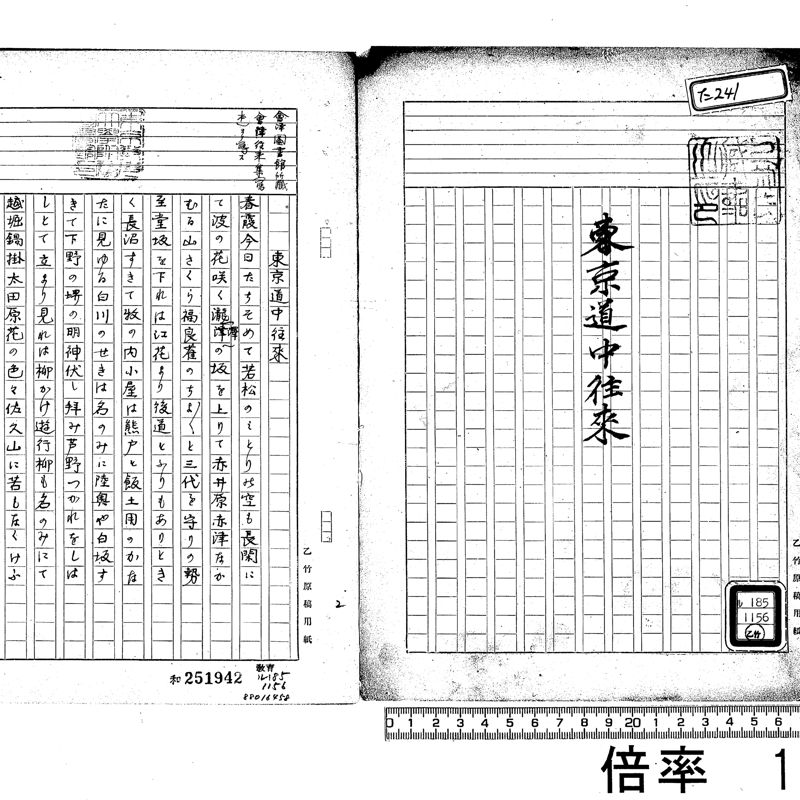 た241
東京道中往來
ル185
1156
乙竹
乙竹原稿用紙
會津圖書館所藏
會津往来集寫
東京道中往來
春霞今日たちそめて若松のみとりの空も長閑に
て波の花咲く瀧澤の坂を上りて赤井原赤津なか
むる山さくら福良雀のちよ〱と三代を守りの勢
至堂坂を下れは江花より後道とふりもありとき
く長沼すきて牧の内小屋は熊戸と飯土用のかな
たに見ゆる白川のせきは名のみに陸奥や白坂す
きて下野の堺の明神伏し拜み芦野つかれをしは
しとて立より見れは柳かけ遊行柳も名のみにて
越堀鍋掛太田原花の色々佐久山に苦もなくけふ
乙竹原稿用紙
2
和251942
教育
ル185
1156
88016458
0 1 2 3 4 5 6 7 8 9 20 1 2 3 4 5 6
倍率 1